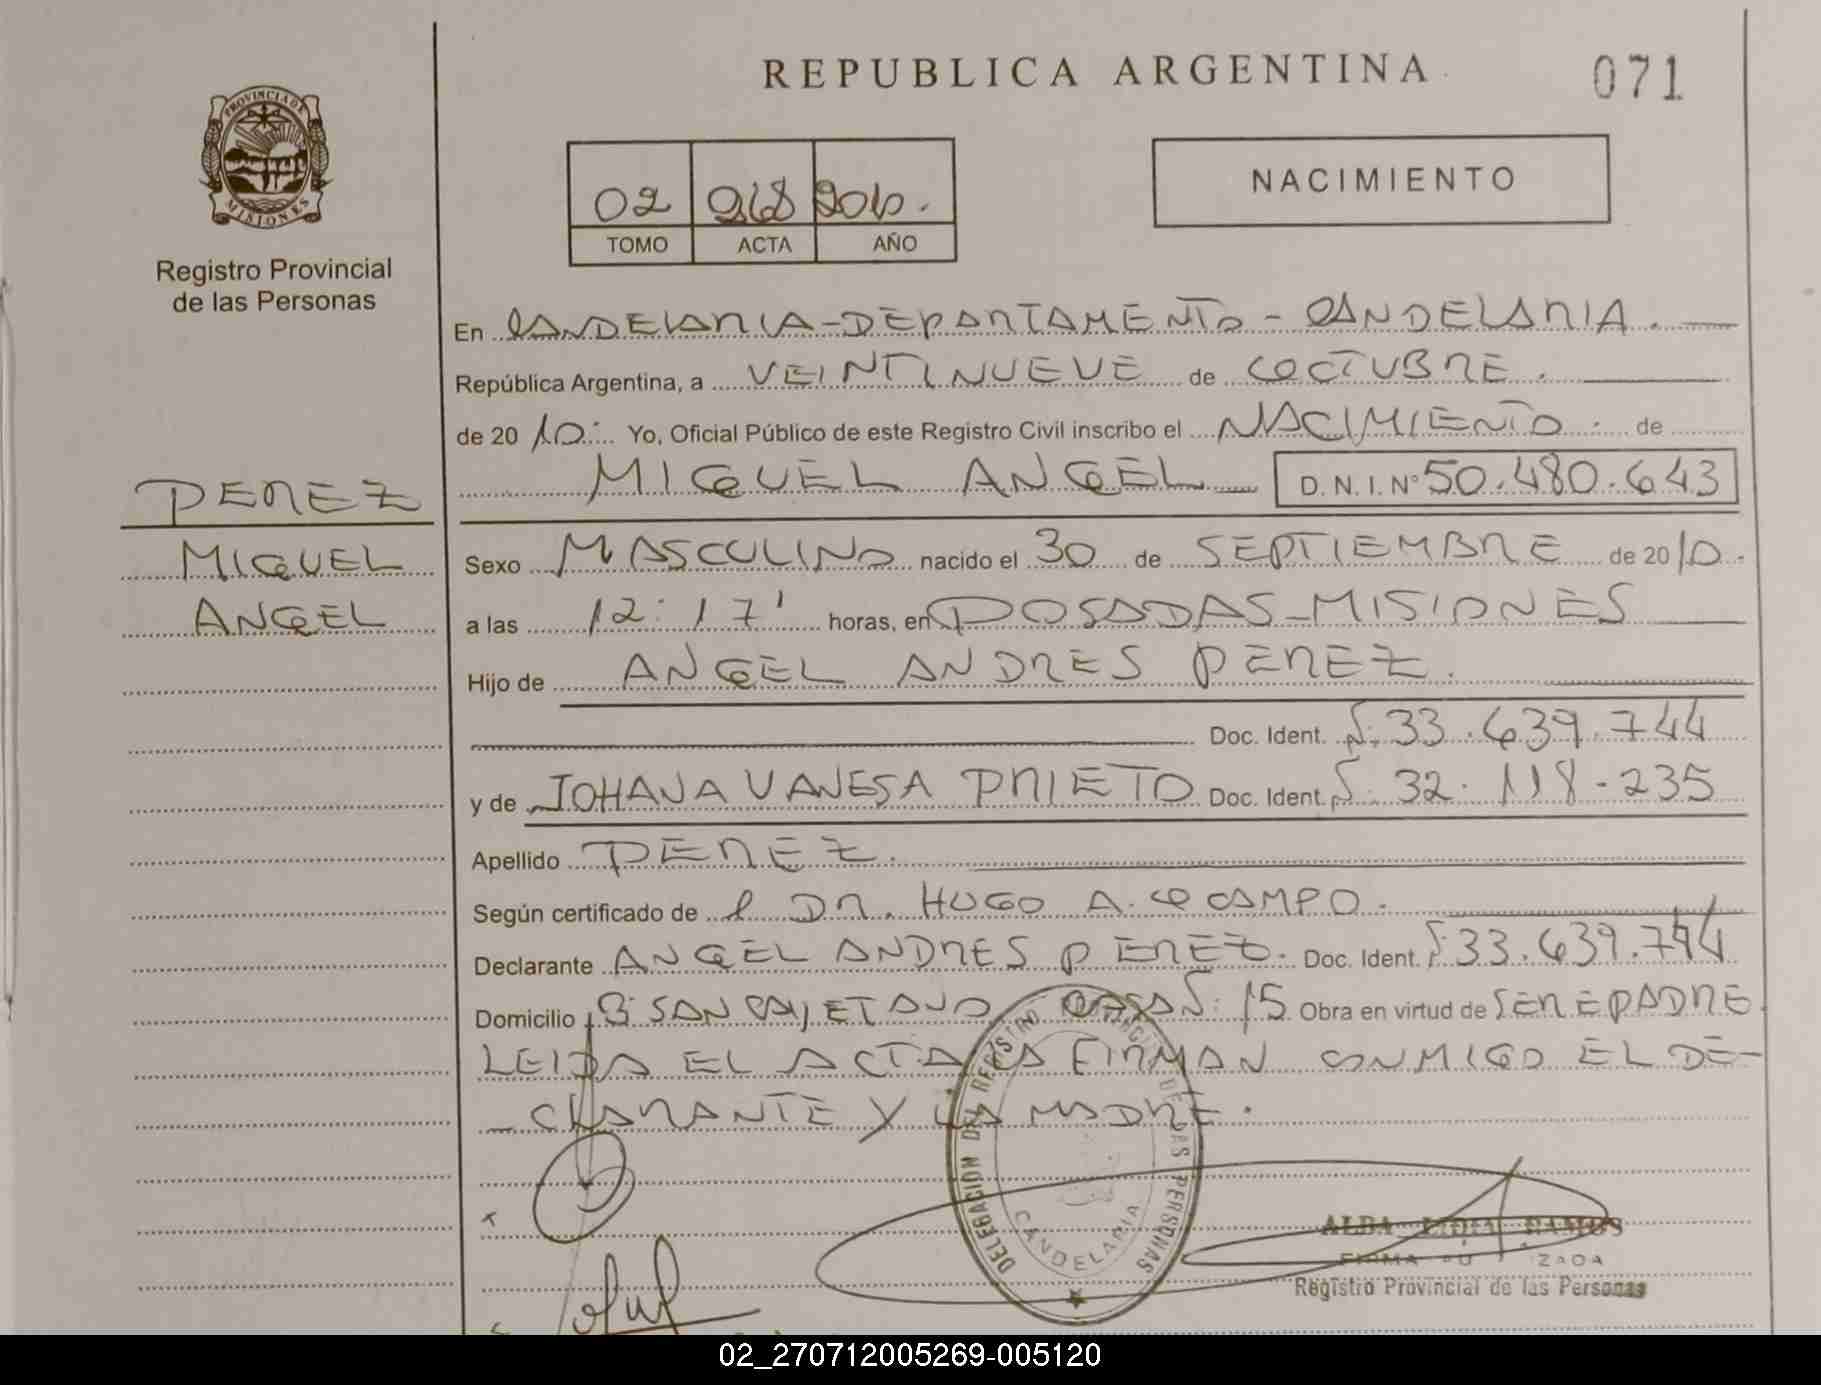 REPUBLICA ARGENTINA
071
PROVINCIA DE
MISIONES
Registro Provincial
de las Personas
02 268 2010.
TOMO ACTA AÑO
NACIMIENTO
En CANDELARIA-DEPARTAMENTO-CANDELARIA.
República Argentina, a VEINTINUEVE de OCTUBRE.
de 2010. Yo, Oficial Público de este Registro Civil inscribo el NACIMIENTO. de
MIGUEL ANGEL D.N.I. Nº 50.480.643
PEREZ
MIGUEL
ANGEL
Sexo MASCULINO nacido el 30 de SEPTIEMBRE de 2010.
a las 12:17' horas, en POSADAS-MISIONES
Hijo de ANGEL ANDRES PEREZ.
Doc. Ident. N. 33.639.744
y de JOHANA VANESA PRIETO Doc. Ident. N. 32.118-235
Apellido PEREZ.
Según certificado de DR. HUGO A. OCAMPO.
Declarante ANGEL ANDRES PEREZ. Doc. Ident. N. 33.639.744
Domicilio Bº SAN CAYETANO CASA N. 15 Obra en virtud de SER EL PADRE.
LEIDA EL ACTA LA FIRMAN CONMIGO EL DE-
-CLARANTE Y LA MADRE.
DELEGACION DEL REGISTRO PROVINCIAL DE LAS PERSONAS
CANDELARIA
ALBA LIDIA RAMOS
FIRMA
Registro Provincial de las Personas
02_270712005269-005120